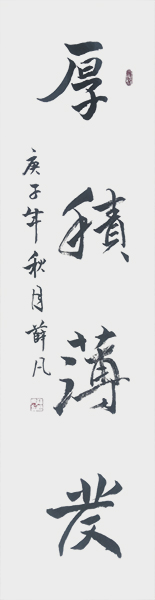 厚積薄發
庚子年秋月薛凡